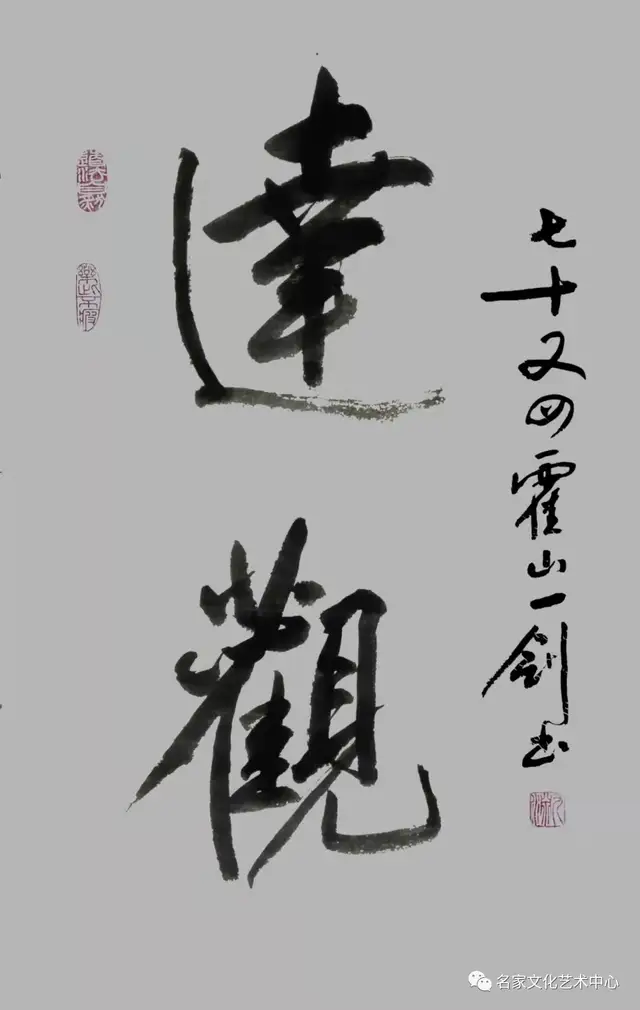 達觀
七十又四霍山一剑书
名家文化艺术中心